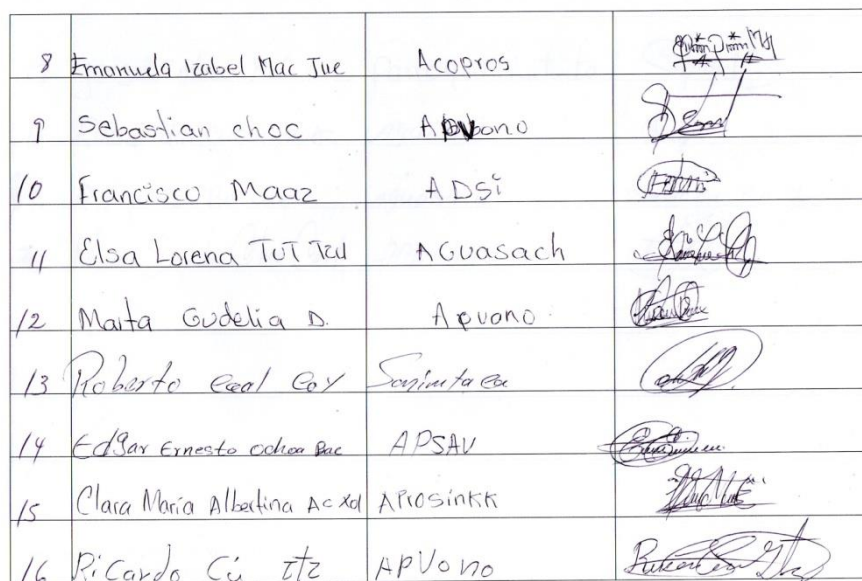 8 Emanuela Izabel Mac Jue Acopros
9 Sebastian choc
10 Francisco Maaz ADSi
11 Elsa Lorena TUT Tzu AGUasach
12 Marta Gudelia D. Apvono
13 Roberto Caal Coy
14 Edgar Ernesto ochoa Bac APSAV
15 Clara Maria Albertina Ac Xol APrOSinKK
16 Ricardo Cú Itz APVono